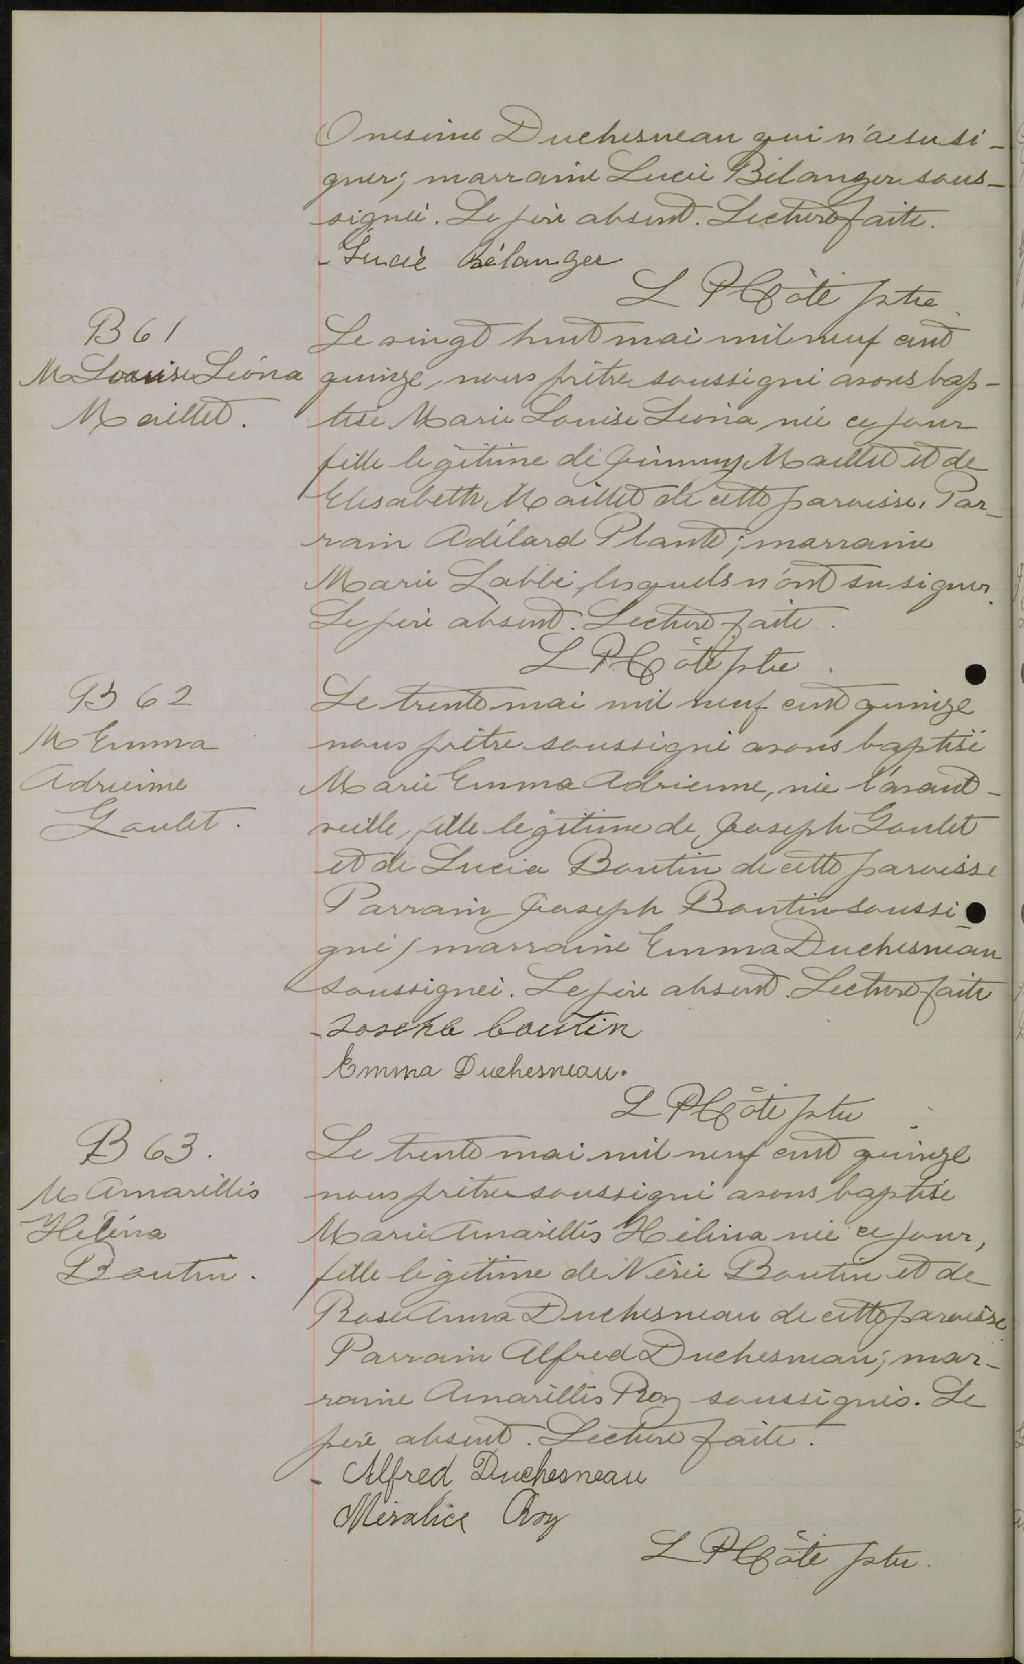 Onesime Duchesneau qui n'a su si-
gner; marraine Lucie Bélanger sous-
signée. Le père absent. Lecture faite.
Lucie Bélanger
L P Côté ptre
B 61
M Louise Léona
Maillet.
Le vingt huit mai mil neuf cent
quinze, nous prêtre soussigné avons bap-
tisé Marie Louise Léona, née ce jour
fille légitime de Jimmy Maillet et de
Elisabeth Maillet de cette paroisse. Par-
rain Adélard Plante; marraine
Marie Labbé, lesquels n'ont su signer.
Le père absent. Lecture faite.
L P Côté ptre
B 62
M Emma
Adrienne
Goulet.
Le trente mai mil neuf cent quinze
nous prêtre soussigné avons baptisé
Marie Emma Adrienne, née l'avant-
veille, fille légitime de Joseph Goulet
et de Lucia Boutin de cette paroisse
Parrain Joseph Boutin soussi-
gné; marraine Emma Duchesneau
soussignée. Le père absent. Lecture faite
Joseph boutin
Emma Duchesneau.
L P Côté ptre
B 63.
M Amarillis
Hélèna
Boutin.
Le trente mai mil neuf cent quinze
nous prêtre soussigné avons baptisé
Marie Amarillis Hélina née ce jour,
fille légitime de Nérée Boutin et de
Rose Anna Duchesneau de cette paroisse
Parrain Alfred Duchesneau; mar-
raine Amarillis Roy soussignés. Le
père absent. Lecture faite.
Alfred Duchesneau
Méralice Roy
L P Côté ptre.